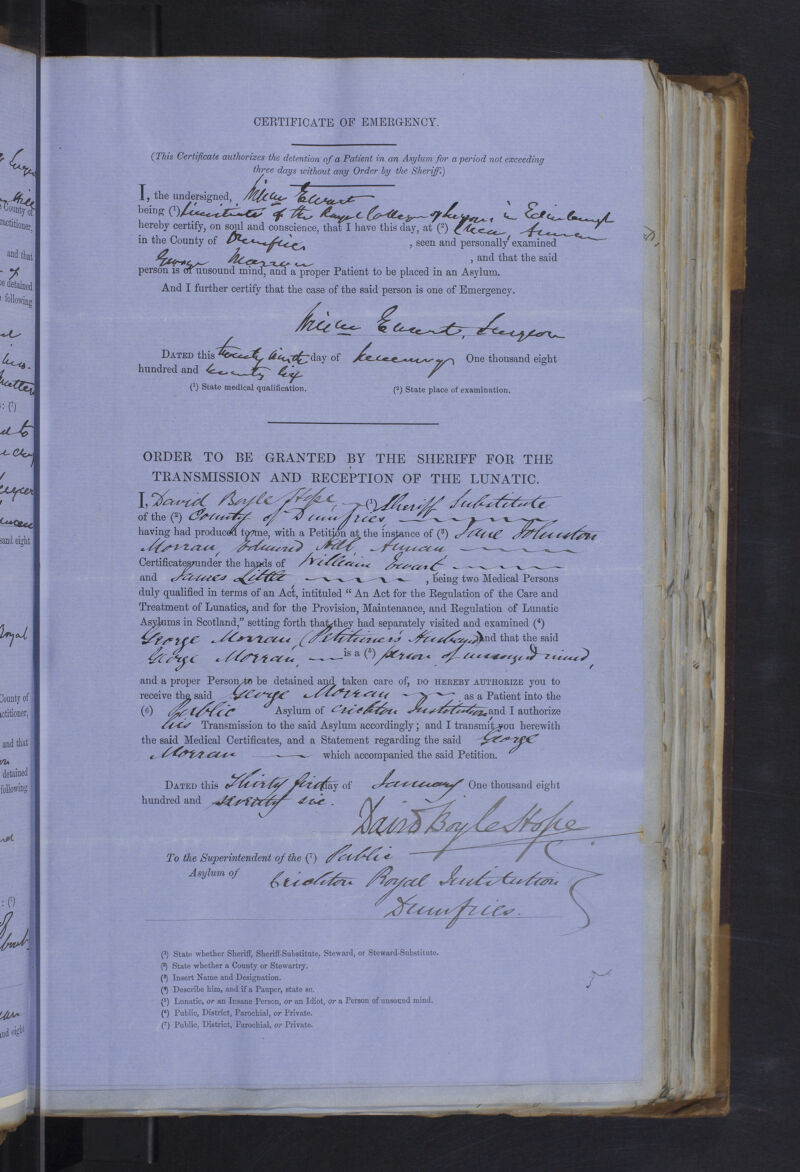 CERTIFICATE OF EMERGENCY.
(This Certificate authorizes the detention of a Patient in an Asylum for a period not exceeding
three days without any Order by the Sheriff.)
I, the undersigned, William Ewart
being (¹) Licentiate of the Royal College of Surgeons in Edinburgh
hereby certify, on soul and conscience, that I have this day, at (²) Annan
in the County of Dumfries , seen and personally examined
George Morran , and that the said
person is of unsound mind, and a proper Patient to be placed in an Asylum.
And I further certify that the case of the said person is one of Emergency.
William Ewart, Surgeon
DATED this twenty ninth day of January One thousand eight
hundred and seventy six
(¹) State medical qualification. (²) State place of examination.
ORDER TO BE GRANTED BY THE SHERIFF FOR THE
TRANSMISSION AND RECEPTION OF THE LUNATIC.
I, David Boyle Hope, (¹) Sheriff Substitute
of the (²) County of Dumfries,
having had produced to me, with a Petition at the instance of (³) Jane Johnston
Morran, Hill, Annan
Certificates under the hands of William Ewart
and James Little , being two Medical Persons
duly qualified in terms of an Act, intituled “ An Act for the Regulation of the Care and
Treatment of Lunatics, and for the Provision, Maintenance, and Regulation of Lunatic
Asylums in Scotland,” setting forth that they had separately visited and examined (⁴)
George Morran (Petitioner's Husband) and that the said
George Morran, is a (⁵) person of unsound mind,
and a proper Person to be detained and taken care of, DO HEREBY AUTHORIZE you to
receive the said George Morran , as a Patient into the
(⁶) Public Asylum of Crichton Institution and I authorize
his Transmission to the said Asylum accordingly; and I transmit you herewith
the said Medical Certificates, and a Statement regarding the said George
Morran which accompanied the said Petition.
DATED this Thirty first day of January One thousand eight
hundred and seventy six.
David Boyle Hope
To the Superintendent of the (⁷) Public
Asylum of Crichton Royal Institution
Dumfries.
(¹) State whether Sheriff, Sheriff-Substitute, Steward, or Steward-Substitute.
(²) State whether a County or Stewartry.
(³) Insert Name and Designation.
(⁴) Describe him, and if a Pauper, state so.
(⁵) Lunatic, or an Insane Person, or an Idiot, or a Person of unsound mind.
(⁶) Public, District, Parochial, or Private.
(⁷) Public, District, Parochial, or Private.
County of
and that
detained
following
and eight